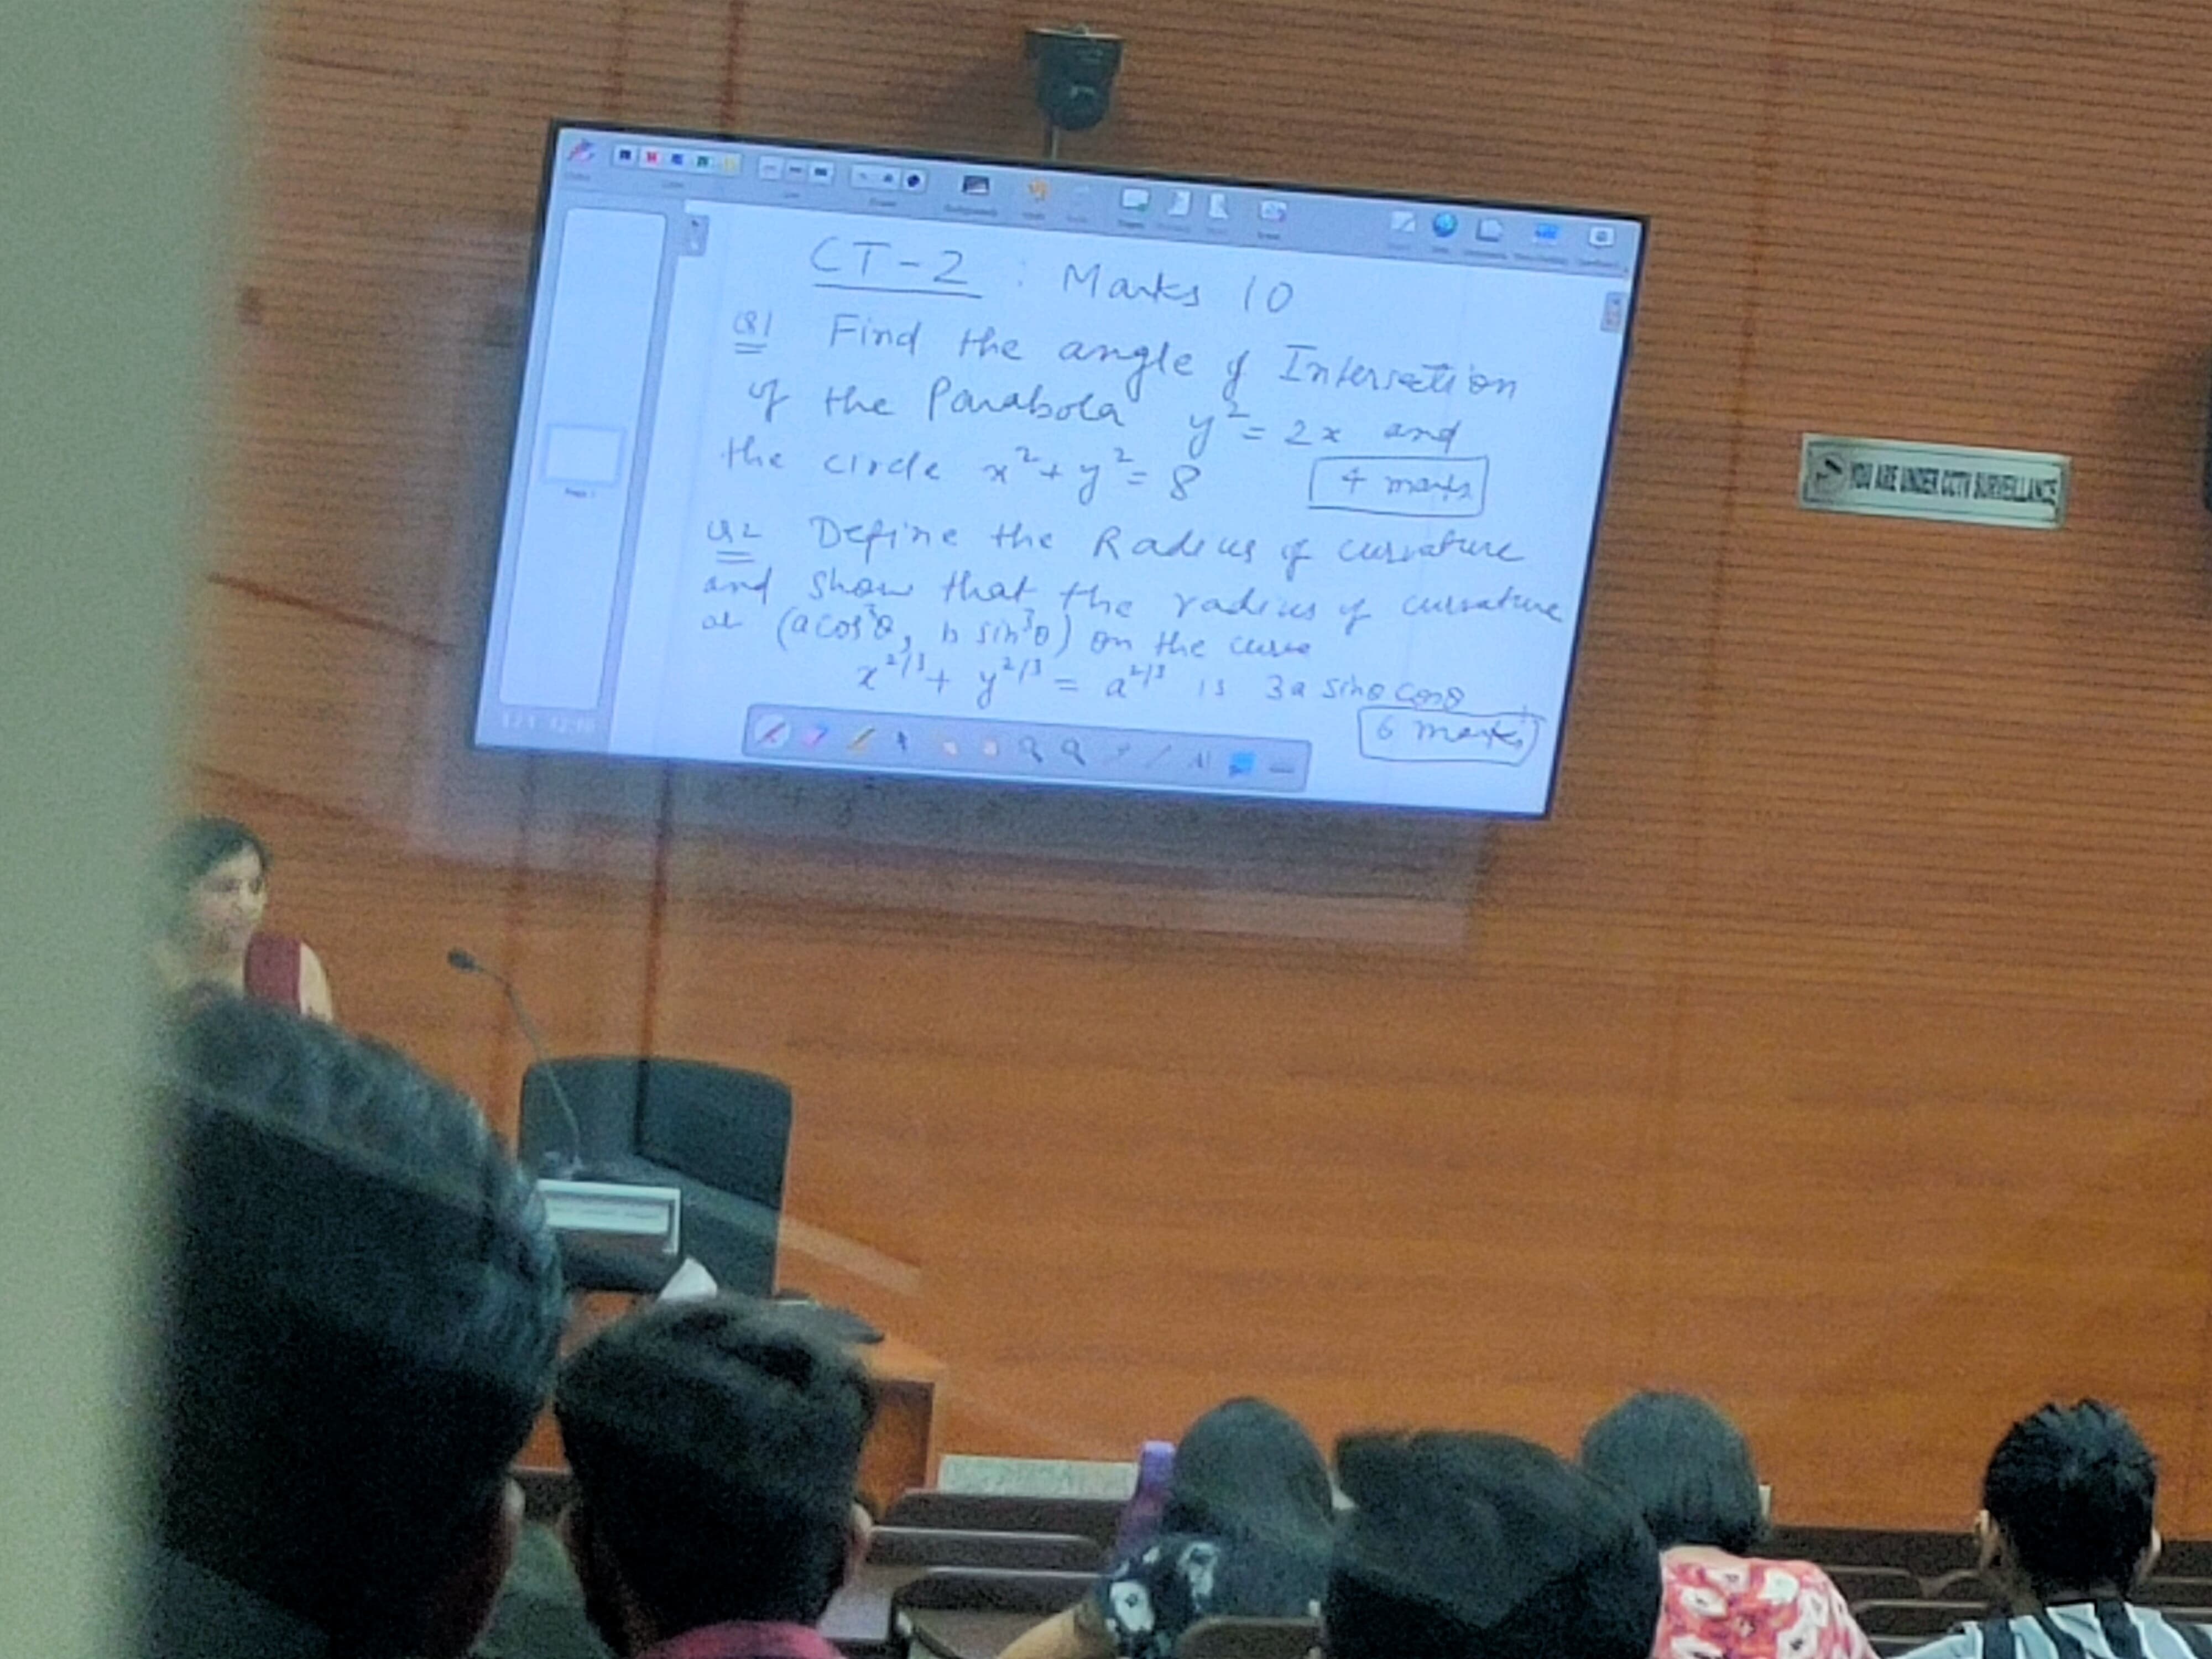 CT-2 : Marks 10
Q1 Find the angle of Intersection
of the Parabola y² = 2x and
the circle x² + y² = 8 4 marks
Q2 Define the Radius of curvature
and show that the radius of curvature
at (a cos³θ, b sin³θ) on the curve
x^2/3 + y^2/3 = a^2/3 is 3a sinθ cosθ
6 marks
YOU ARE UNDER CCTV SURVEILLANCE